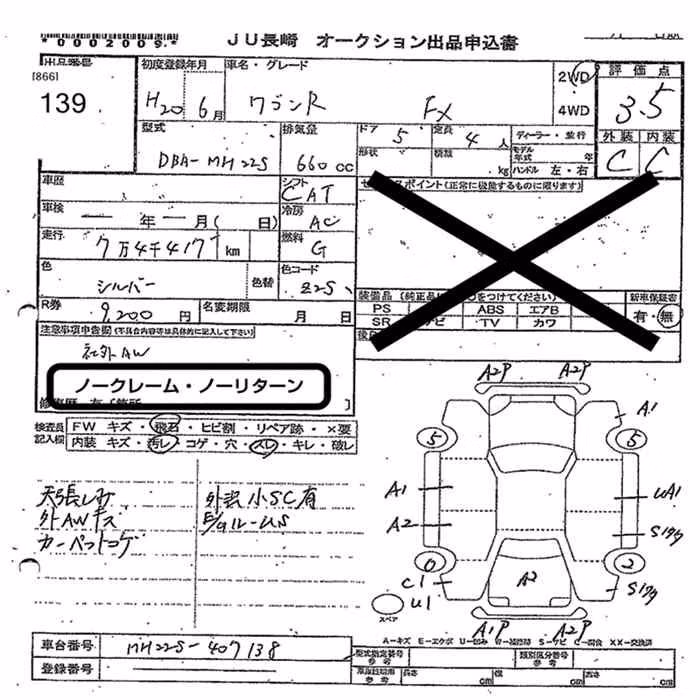 *0002009* JU長崎 オークション出品申込書
[866]
139
初度登録年月 車名・グレード 2WD 評価点
H20 6月 ワゴンR FX 4WD 3.5
型式 排気量 ドア 5 定員 4人 ディーラー・並行 外装 内装
DBA-MH22S 660cc 形状 積載 kg モデル年式 年 ハンドル 左・右 C C
車歴 シフト CAT セールスポイント(正常に機能するものに限ります)
車検 ― 年 ― 月( 日) 冷房 AC
走行 7万4千417 km 燃料 G
色 シルバー 色替 色コード Z2S
装備品 (純正品に○をつけてください) 新車保証書
R券 9,200円 名変期限 月 日 PS ABS エアB 有・無
SR ナビ TV カワ
注意事項申告欄(不具合内容等は具体的に記入して下さい)
社外AW
ノークレーム・ノーリターン
検査員記入欄 FW キズ・飛石・ヒビ割・リペア跡・×要
内装 キズ・汚レ・コゲ・穴・スレ・キレ・破レ
天張しみ 外装小SC有
外AWキズ
カーペットコゲ
A2P A2P
A1
5 5
A1 WA1
A2
0 2
C1 A2
U1
スペア
A1P A2P
A-キズ E-エクボ U-凹み W-補修跡 S-サビ C-腐食 XX-交換済
車台番号 MH22S-407138 型式指定番号 参考 類別区分番号 参考
登録番号 長さ cm 幅 cm 高さ cm